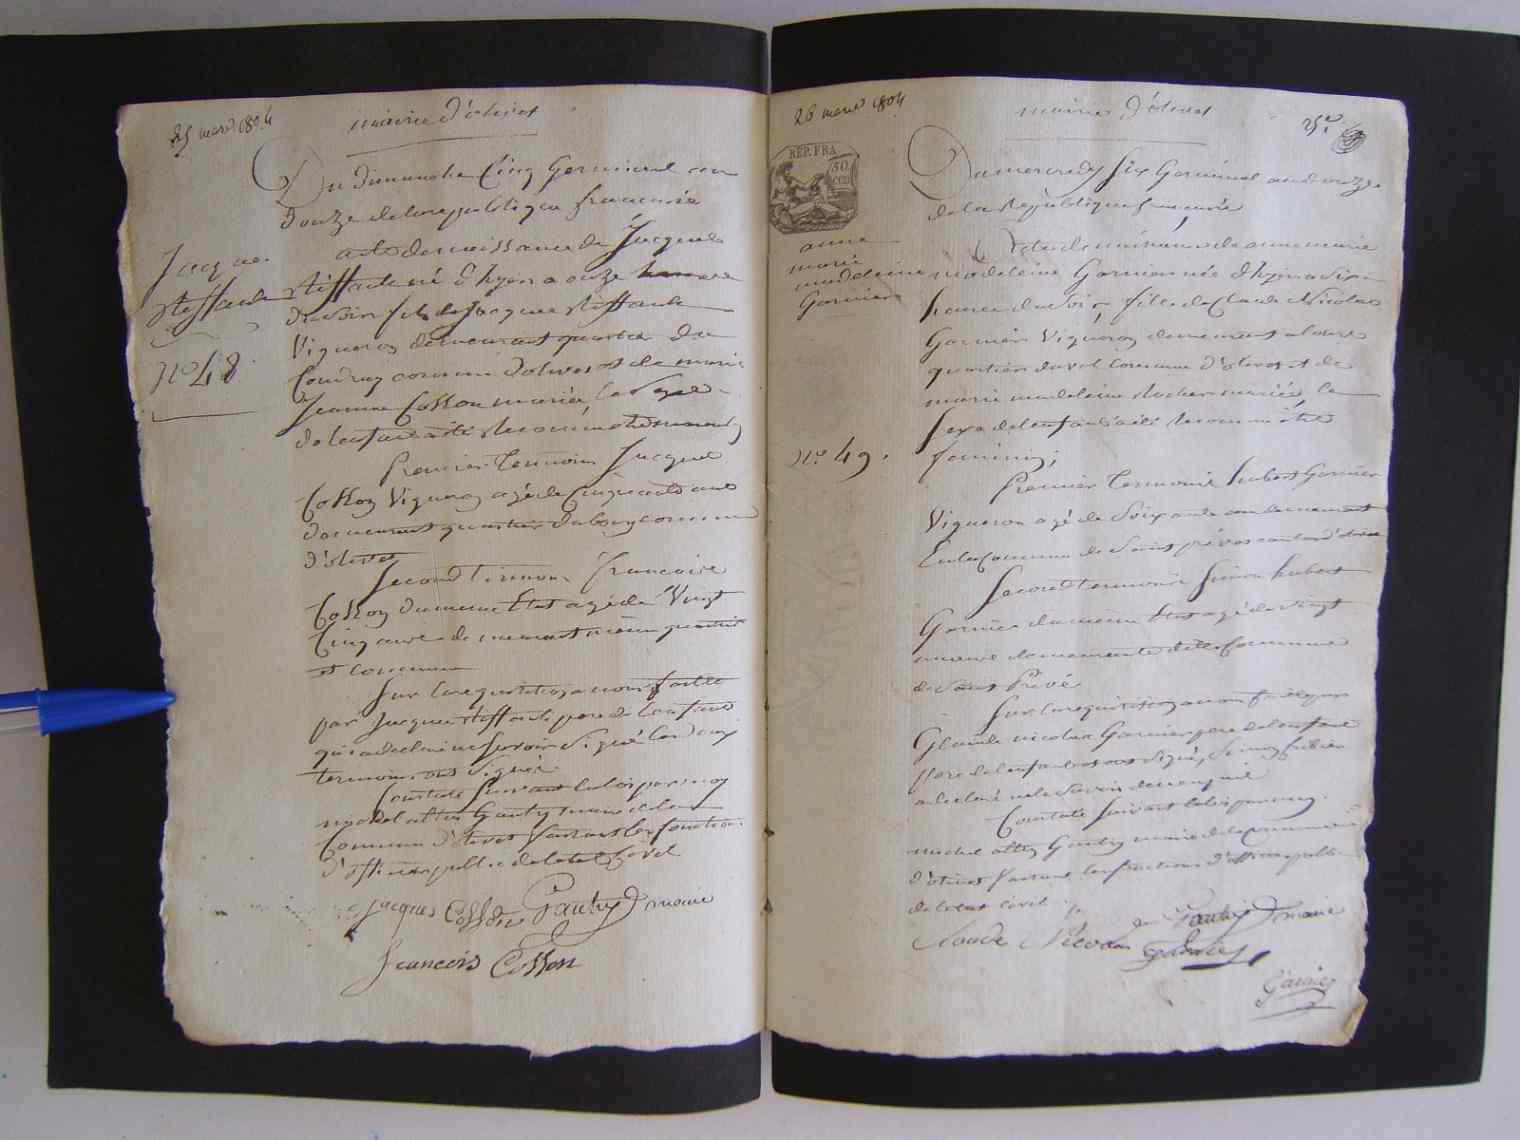 25 mars 1804
mairie d'olivet
Du dimanche Cinq Germinal an
douze de la republique francaise
acte de naissance de Jacque
steffanle né d'hyer a onze heure
du soir fils de Jacque steffanle
Vigneron demeurant quartier du
Coudray commune d'olivet et de marie
Jeanne Cosson mariés, le sexe
de lenfant a été reconnu
Jacque
steffanle
no 48
Premier temoin Jacque
Cosson Vigneron agé de Cinquante ans
demeurant quartier du bourg commune
d'olivet
Second temoin francoise
Cosson du meme Etat agé de Vingt
Cinq ans demeurant meme quartier
et commune
Sur la requisition a nous faitte
par Jacque steffanle pere de lenfant
qui a declaré ne savoir signé les deux
temoins ont signé
Constaté suivant la loi par moy
michel altin Gautry maire de la
Commune d'olivet faisant les fonction
d'officier public de letat Civil
jacques Cosson Gautry maire
francois Cosson
26 mars 1804
mairie d'olivet
25e
REP. FRA.
50
Du mercredy Six Germinal an douze
de la Republique francaise
Acte de naissance de anne marie
madeleine Garnier née d'hyer a dix
heure du soir, fille de Claude Nicolas
Garnier Vigneron demeurant
quartier du val Commune d'olivet et de
marie madeleine Rocher mariés, le
Sexe de lenfant a été reconnu être
feminin;
anne
marie
madeleine
Garnier
no. 49.
Premier temoin hubert Garnier
Vigneron agé de Soixante ans demeurant
En la Commune de Saint privé canton d'olivet
Second temoin Simon hubert
Garnier du meme Etat agé de vingt
demeurant dite Commune
de Saint Privé
Sur la requisition a nous faitte par
Claude nicolas Garnier pere de lenfant
pere de lenfant ont signé, Simon hubert
a declaré ne le savoir de ce enquis
Constaté suivant la loi par moy
michel altin Gautry maire de la commune
d'olivet faisant les fonctions d'officier public
de letat civil.
Gautry maire
Claude Nicolas
Garnier